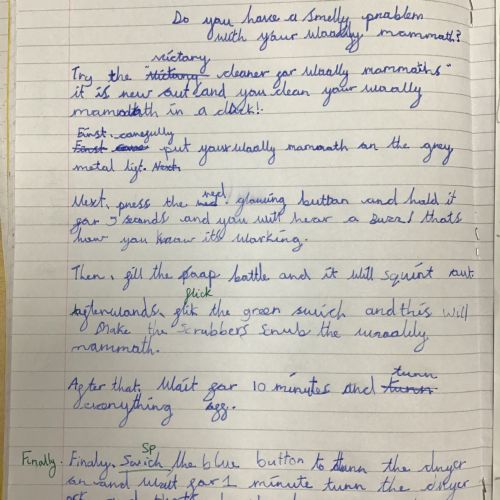 Do you have a smelly problem
with your woolly mammoth?
victory
Try the "victory cleaner for woolly mammoths"
it is new out and you clean your woolly
mammoth in a dock!
First, carefully
First put your woolly mammoth on the grey
metal lift. Next
red
Next, press the red glowing button and hold it
for 5 seonds and you will hear a Buzz! thats
how you know its working.
Then, fill the soap bottle and it will squirt out
flick
afterwards, flik the green swich and this will
Make the Scrubbers Scrub the woolly
mammoth.
turn
After that, Wait for 10 minutes and turn
everything off.
Sp
Finally Finaly, Swich the blue button to turn the dryer
on and wait for 1 minute turn the dryer